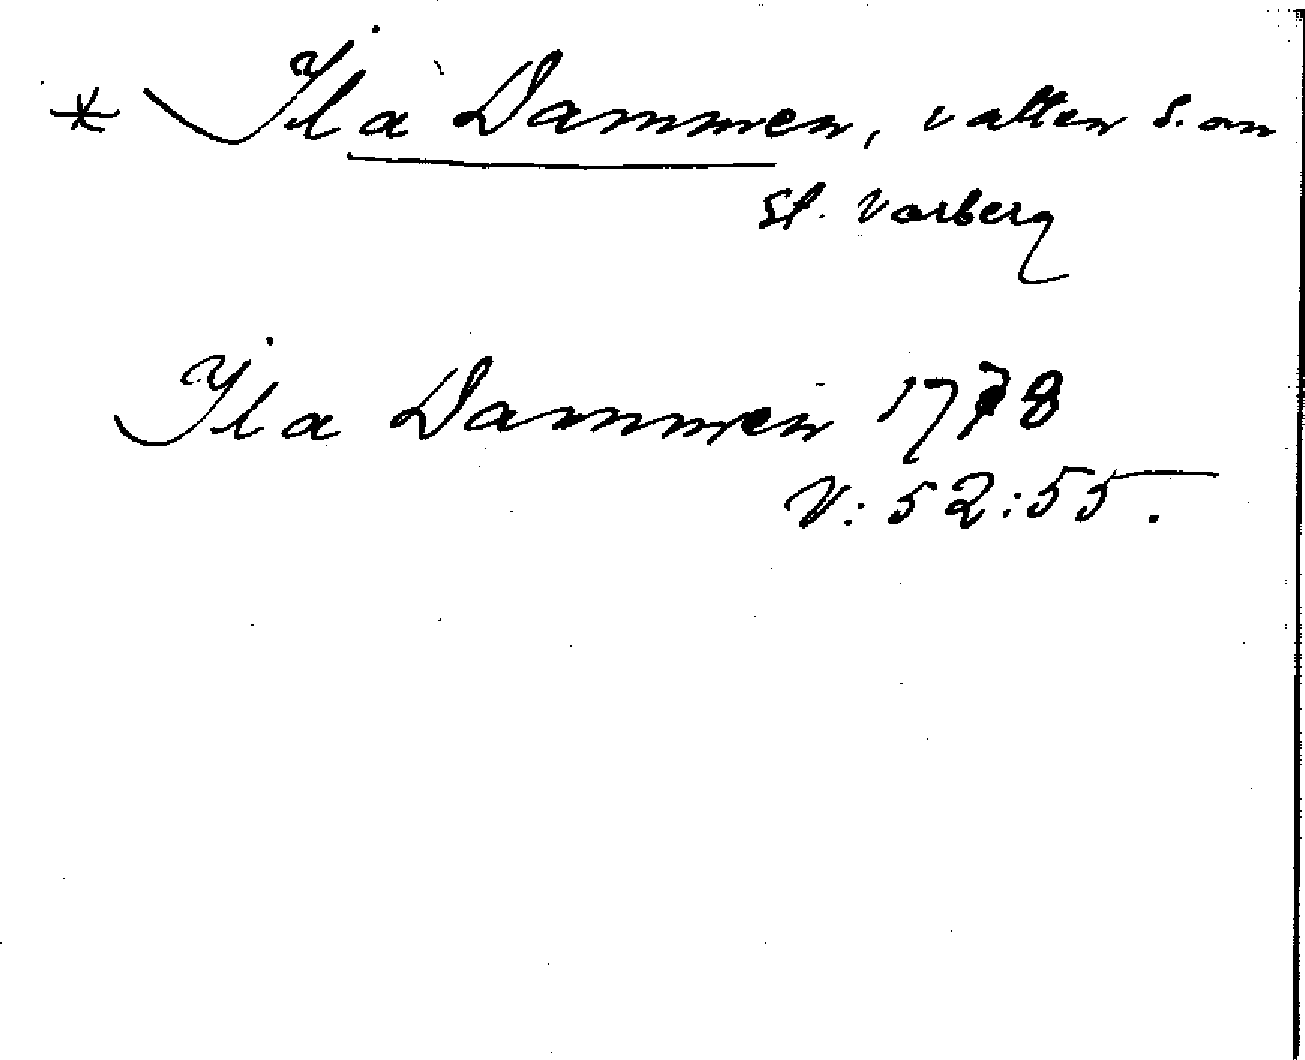 * Ila Dammen, vatten S. om
St. Varberg
Ila Dammen 1778
V: 52:55.